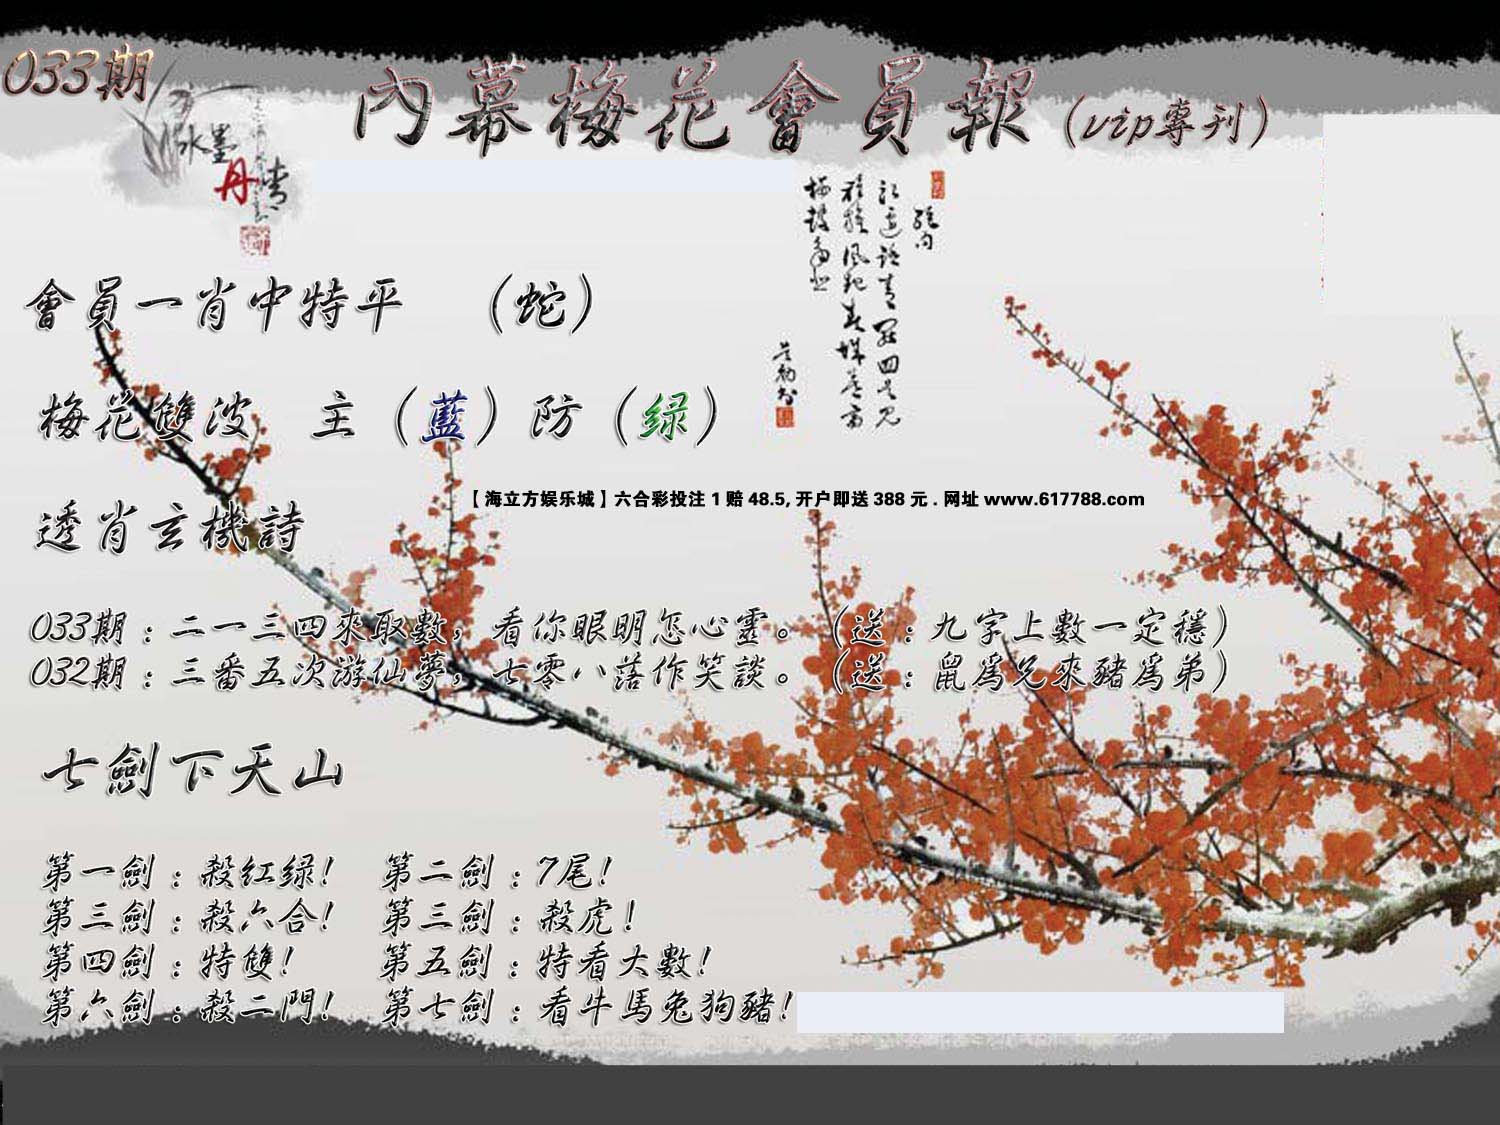 033期
內幕梅花會員報(vip專刊)
水墨
丹青
會員一肖中特平 （蛇）
梅花雙波 主（藍）防（绿）
【海立方娱乐城】六合彩投注1赔48.5,开户即送388元.网址www.617788.com
透肖玄機詩
033期：二一三四來取數，看你眼明怎心靈。（送：九字上數一定穩）
032期：三番五次游仙夢，七零八落作笑談。（送：鼠爲兄來豬爲弟）
七劍下天山
第一劍：殺紅绿! 第二劍：7尾!
第三劍：殺六合! 第三劍：殺虎!
第四劍：特雙! 第五劍：特看大數!
第六劍：殺二門! 第七劍：看牛馬兔狗豬!